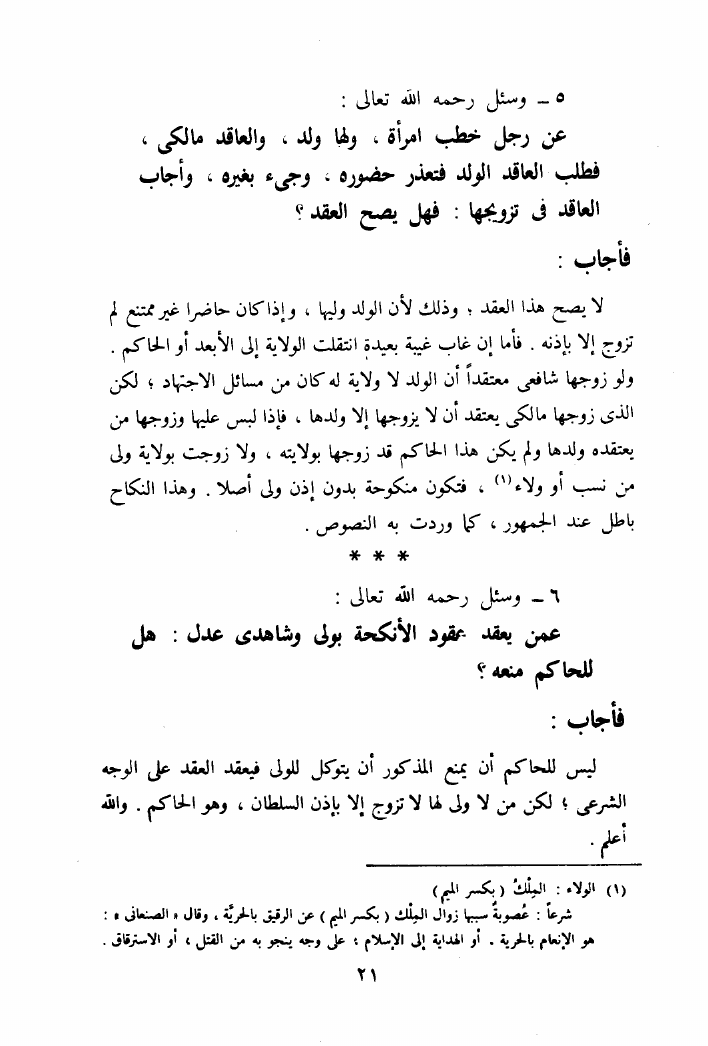 ٥ – وسئل رحمه الله تعالى :
عن رجل خطب امرأة ، ولها ولد ، والعاقد مالكى ،
فطلب العاقد الولد فتعذر حضوره ، وجىء بغيره ، وأجاب
العاقد فى تزويجها : فهل يصح العقد ؟
فأجاب :
لا يصح هذا العقد ؛ وذلك لأن الولد وليها ، وإذا كان حاضرا غير ممتنع لم
تزوج إلا بإذنه . فأما إن غاب غيبة بعيدة انتقلت الولاية إلى الأبعد أو الحاكم .
ولو زوجها شافعى معتقداً أن الولد لا ولاية له كان من مسائل الاجتهاد ؛ لكن
الذى زوجها مالكى يعتقد أن لا يزوجها إلا ولدها ، فإذا لبس عليها وزوجها من
يعتقده ولدها ولم يكن هذا الحاكم قد زوجها بولايته ، ولا زوجت بولاية ولى
من نسب أو ولاء(١) ، فتكون منكوحة بدون إذن ولى أصلا . وهذا النكاح
باطل عند الجمهور ، كما وردت به النصوص .
* * *
٦ – وسئل رحمه الله تعالى :
عمن يعقد عقود الأنكحة بولى وشاهدى عدل : هل
للحاكم منعه ؟
فأجاب :
ليس للحاكم أن يمنع المذكور أن يتوكل للولى فيعقد العقد على الوجه
الشرعى ؛ لكن من لا ولى لها لا تزوج إلا بإذن السلطان ، وهو الحاكم . والله
أعلم .
(١) الولاء : المِلْكُ ( بكسر الميم )
شرعاً : عُصوبةٌ سببها زوال المِلك ( بكسر الميم ) عن الرقيق بالحريَّة ، وقال « الصنعانى » :
هو الإنعام بالحرية . أو الهداية إلى الإسلام ؛ على وجه ينجو به من القتل ، أو الاسترقاق .
٢١